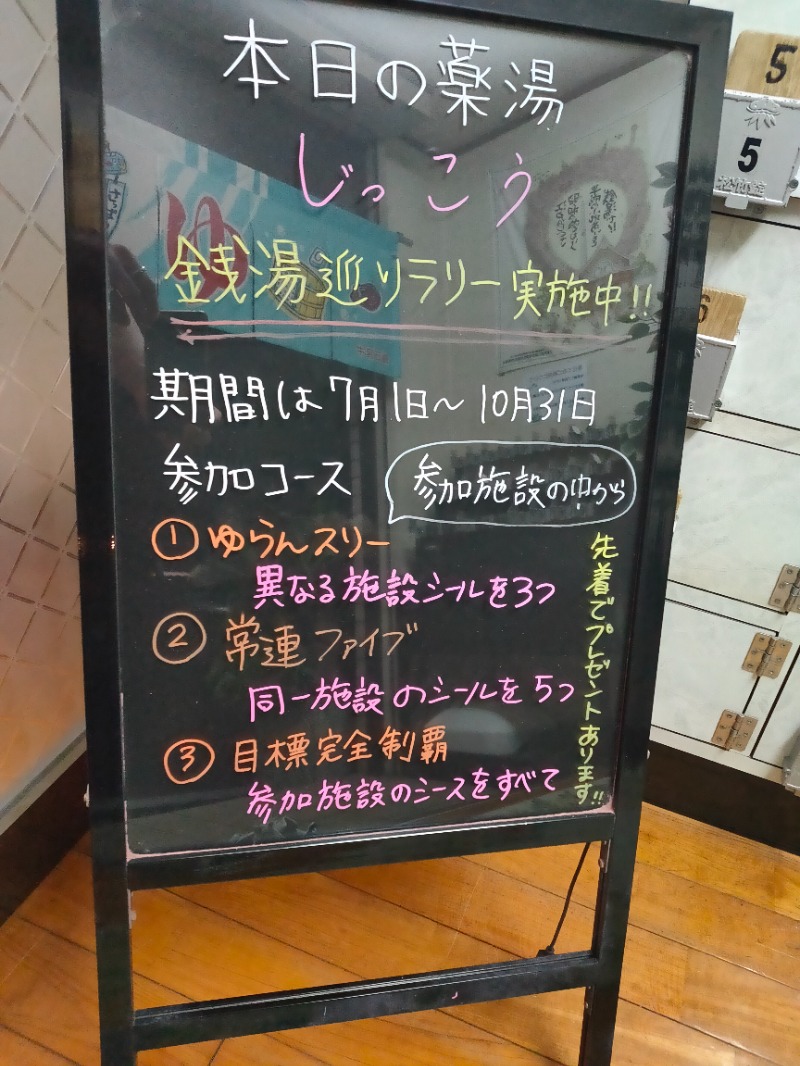 本日の薬湯
じっこう
銭湯巡りラリー実施中!!
期間は7月1日～10月31日
参加コース
参加施設の中から
①ゆらんスリー
異なる施設シールを3つ
②常連ファイブ
同一施設のシールを5つ
③目標完全制覇
参加施設のシースをすべて
先着でプレゼントあります!!
5
5
6
ゆ